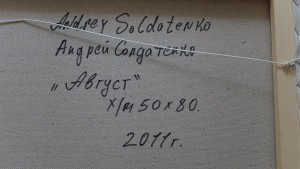 Andrey Soldatenko
Андрей Солдатенко
„Август"
х/м 50х80.
2011г.